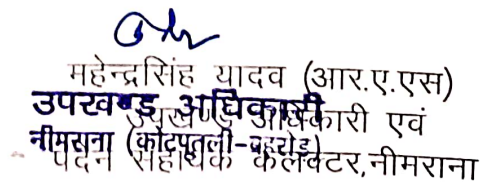 महेन्द्रसिंह यादव (आर.ए.एस)
उपखण्ड अधिकारी
उपखण्ड अधिकारी एवं
नीमराना (कोटपूतली-बहरोड़)
पदेन सहायक कलक्टर,नीमराना